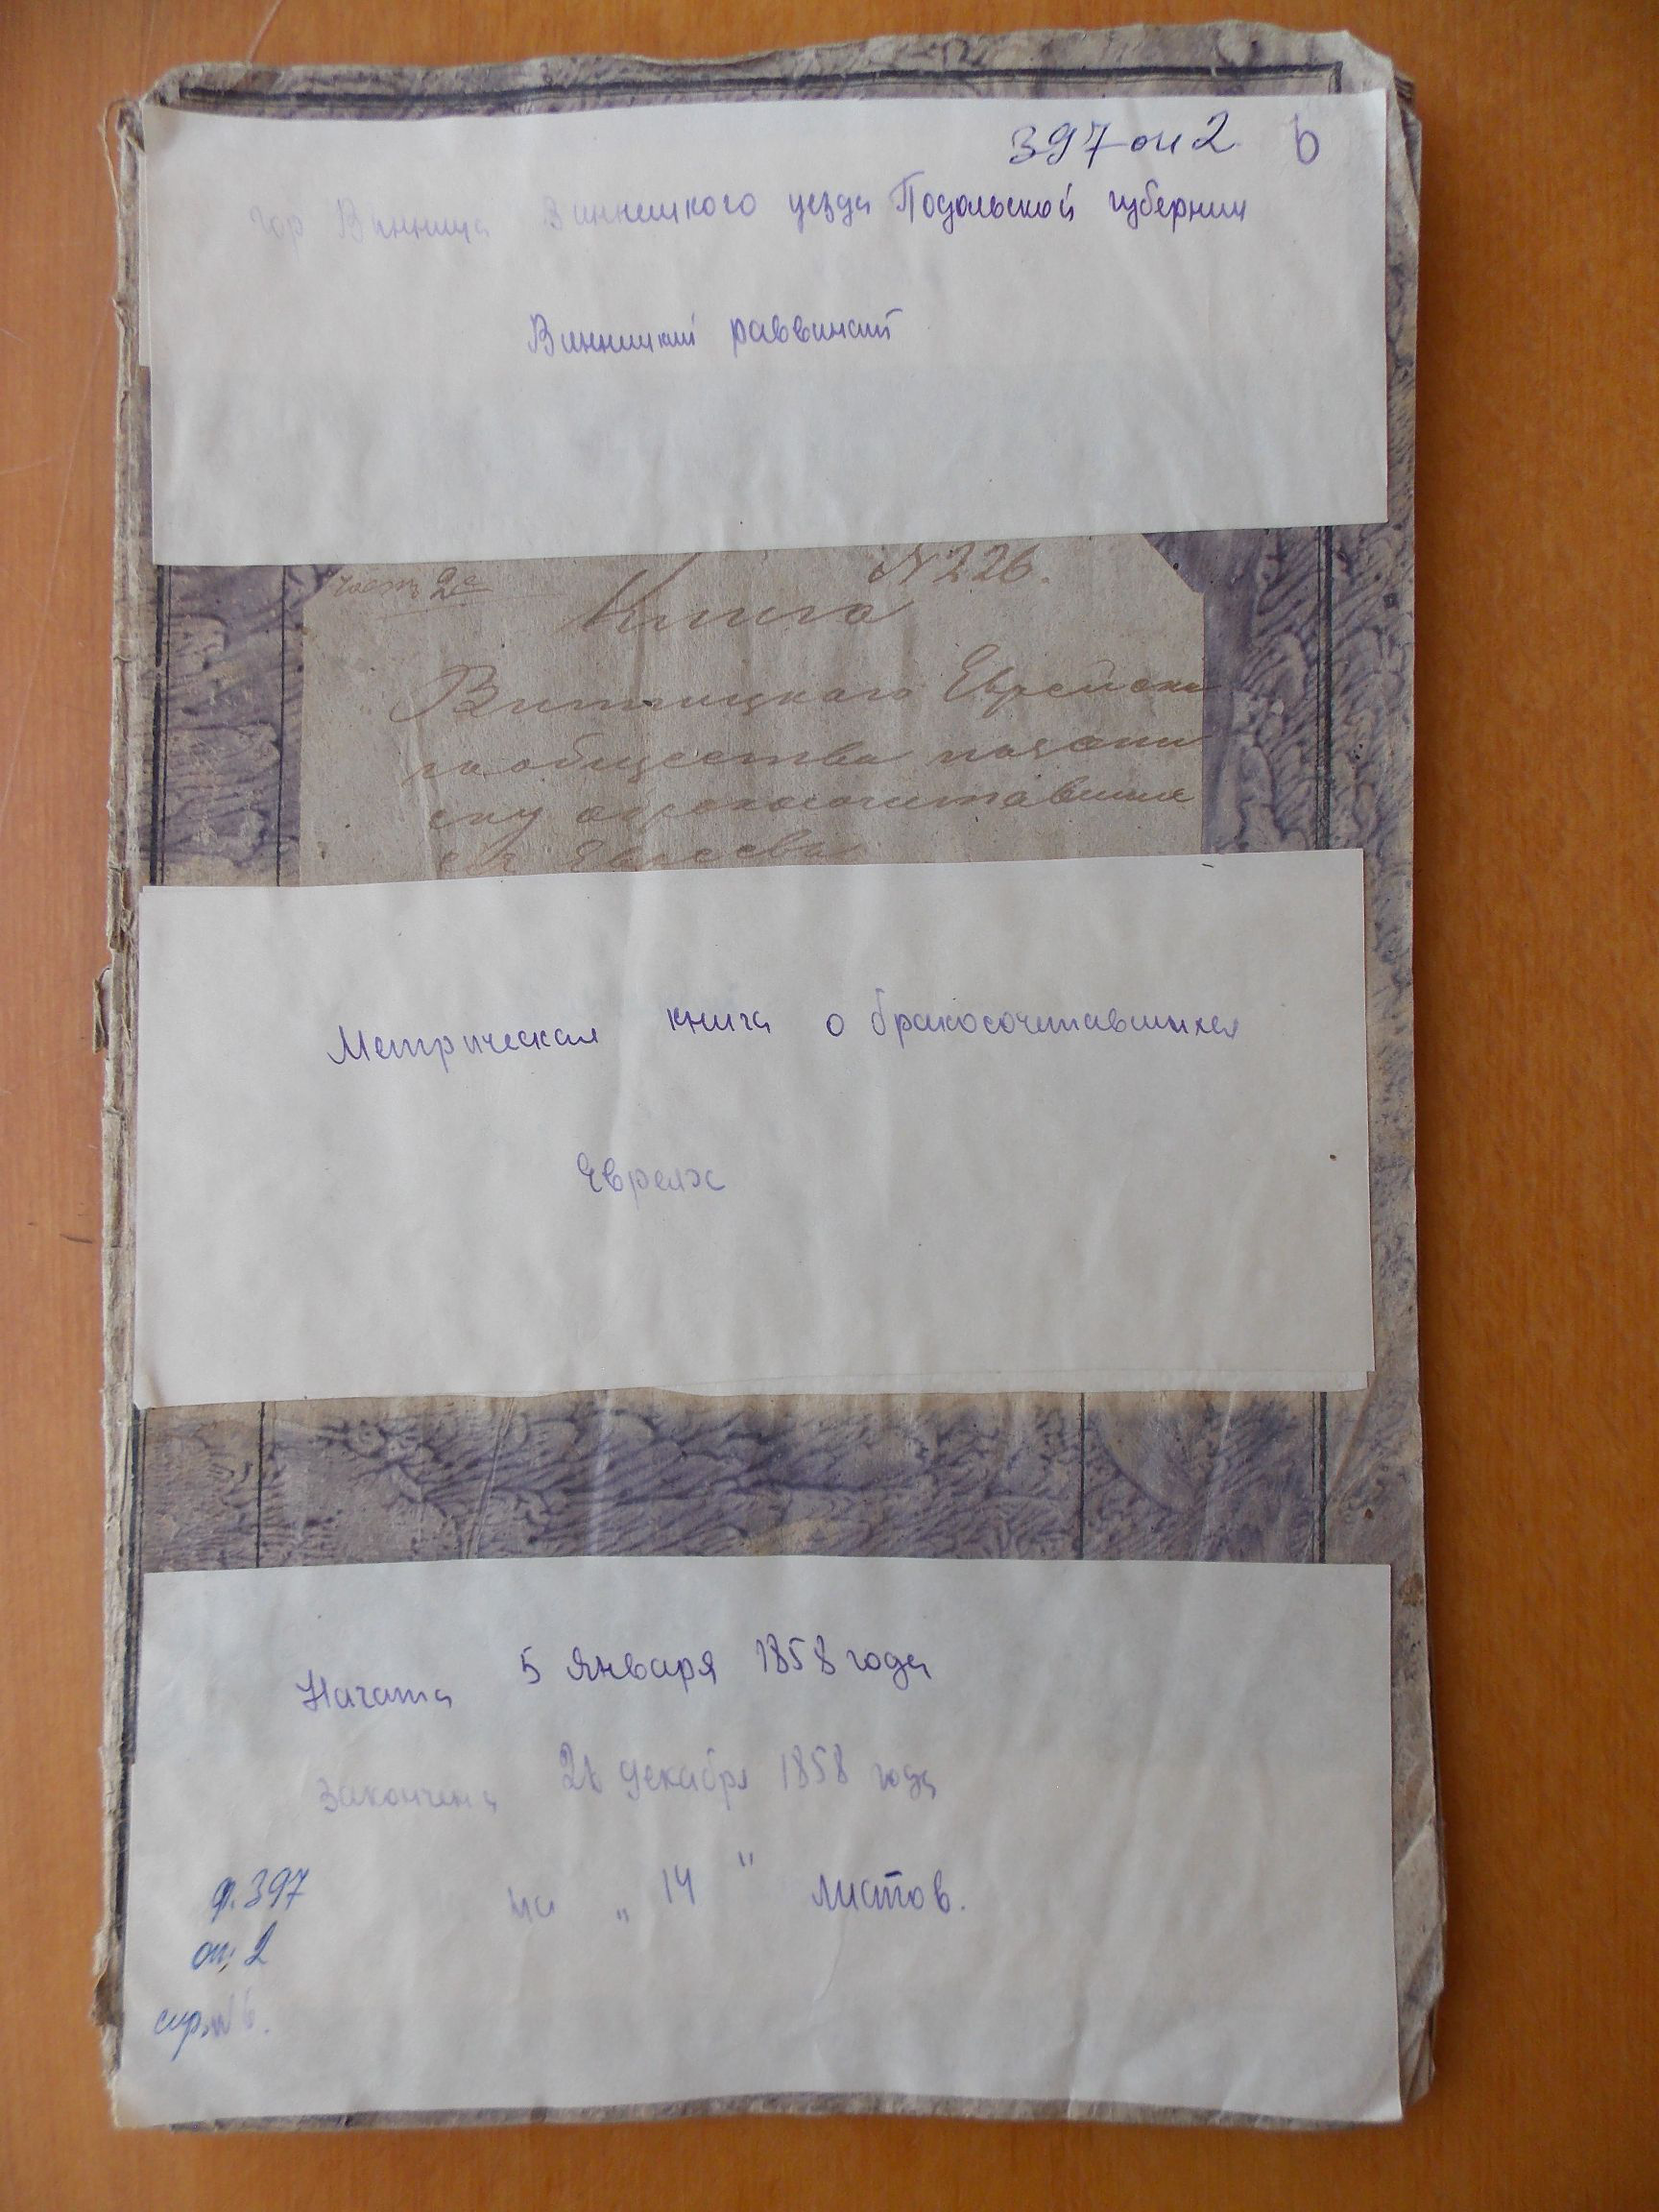 397 оп 2 6
гор Винница Винницкого уезда Подольской губернии
Винницкий раввинат
часть 2я №226.
Книга
Винницкаго Еврейска
гообщества
бракосочетавших
ся
Метрическая книга о бракосочетавшихся
Евреях
Начата 5 января 1858 года
Закончена декабря 1858 года
на „ 14 " листов.
ф. 397
оп. 2
спр. №6.